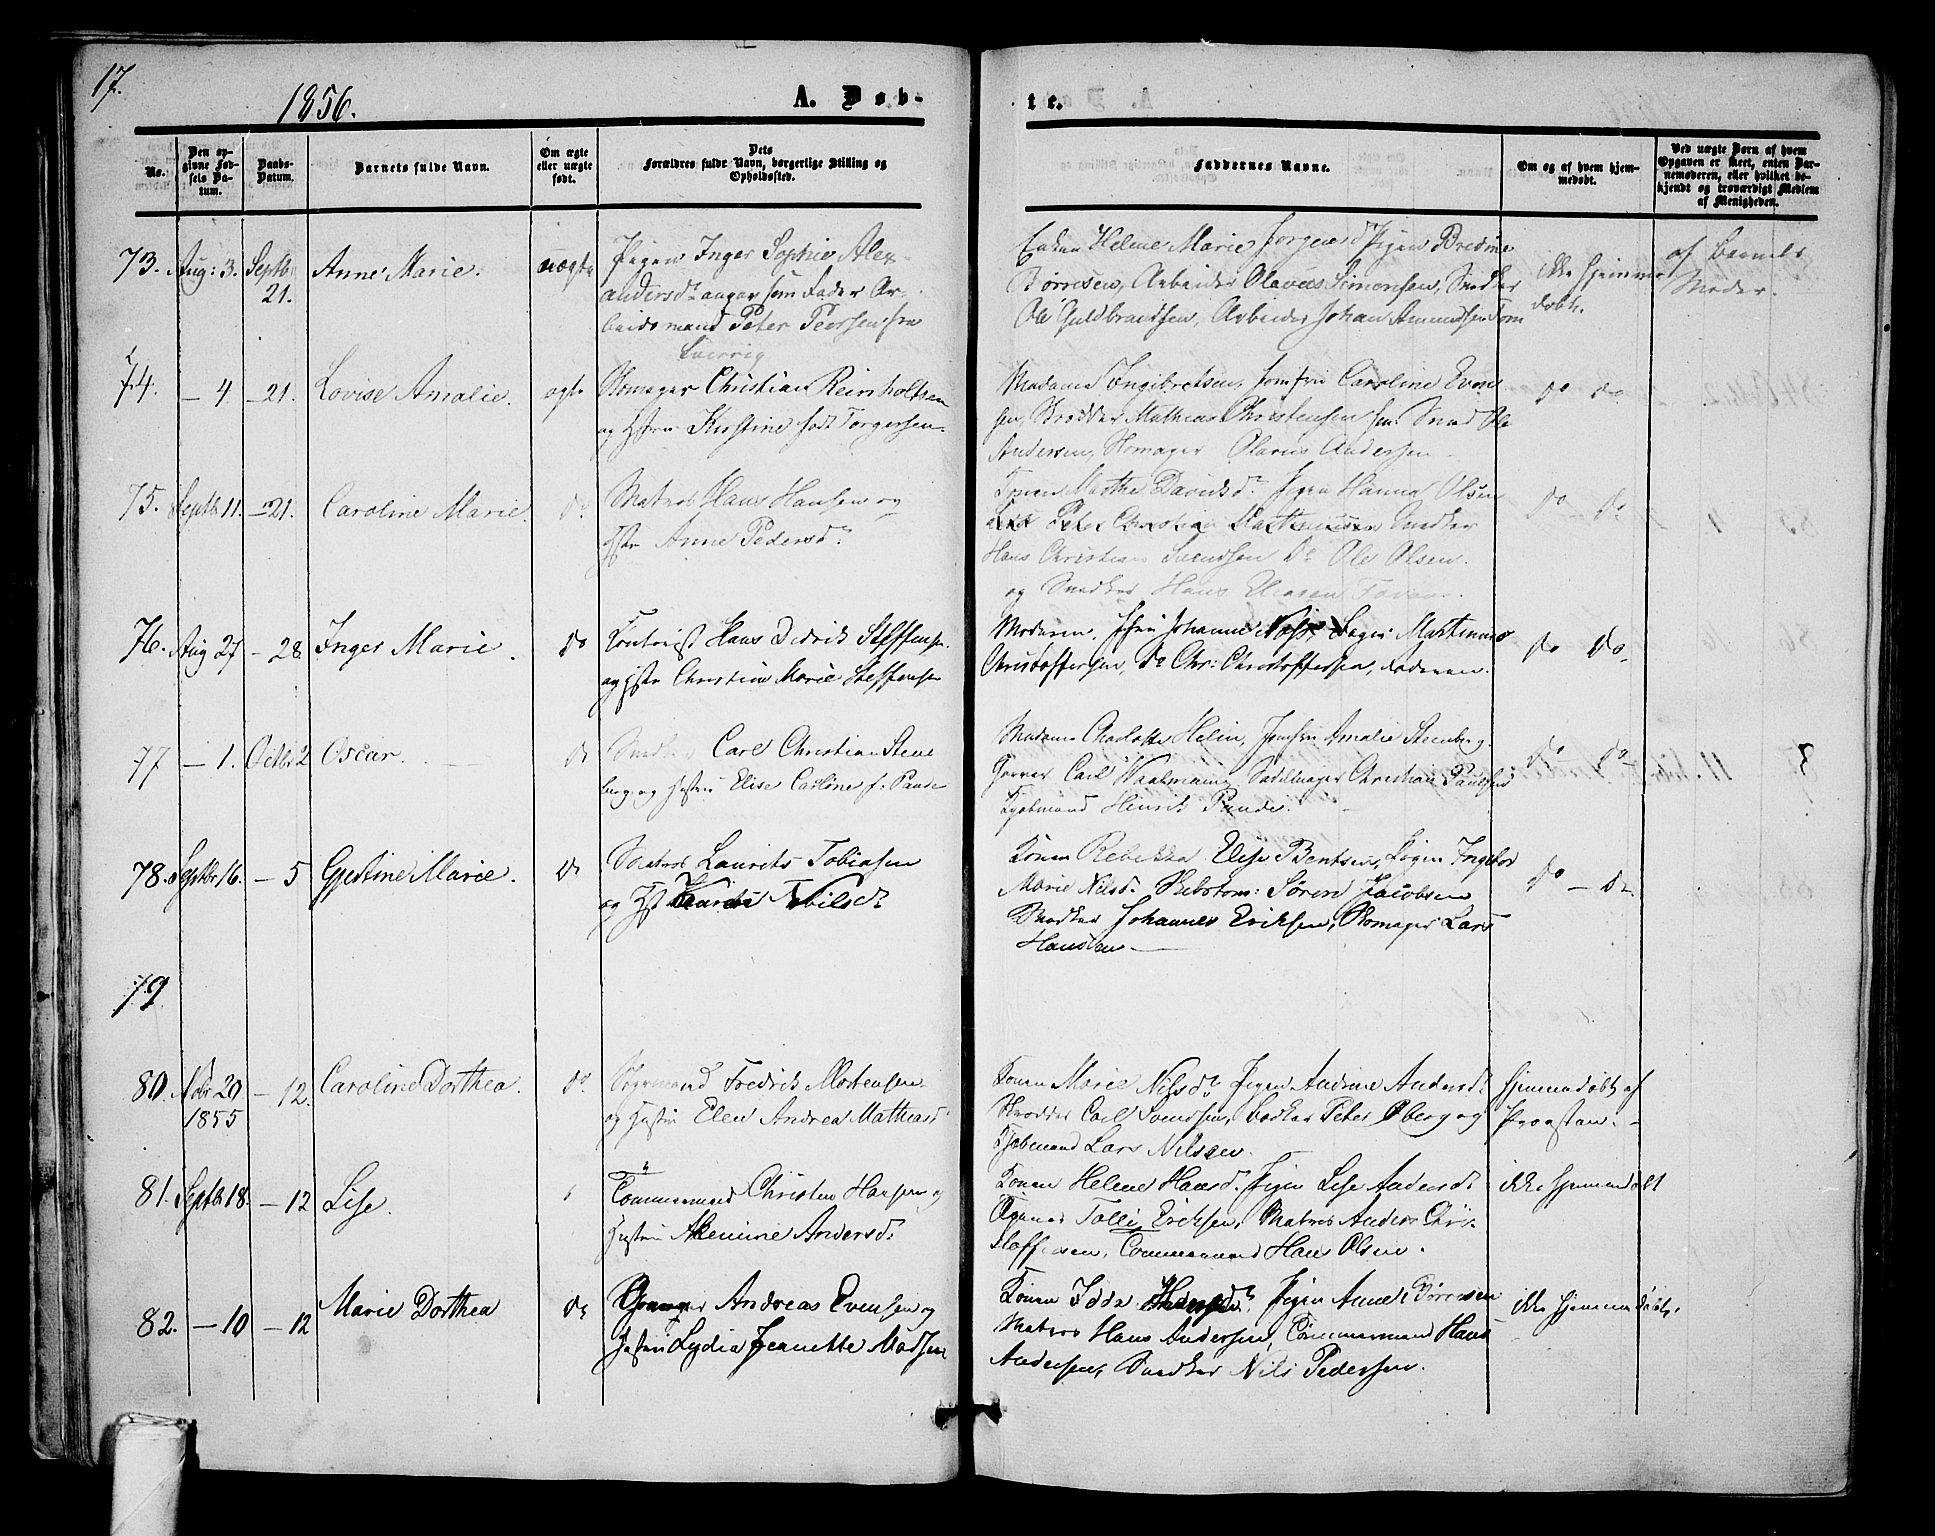 17.
1856.
A. Døb-
te.
No.
Den opgivne Fødsels Datum.
Daabs-Datum.
Barnets fulde Navn.
Om ægte eller uægte født.
Dets Forældres fulde Navn, borgerlige Stilling og Opholdssted.
Faddernes Navne.
Om og af hvem hjemmedøbt.
Ved uægte Børn af hvem Opgaven er skeet, enten Barnemoderen, eller hvilket bekjendt og troværdigt Medlem af Menigheden.
73. Aug: 3. Septbr 21. Anne Marie. uægte
Pigen Inger Sophie Alex-
andersdr angav som Fader Ar-
beidsmand Peter Peersen fra
Sverrig
Enken Helene Marie Jørgensdr Pigen Bredine
Børresen, Arbeider Olaves Simonsen, Snedker
Ole Guldbrandsen, Arbeider Johan Amundsen
ikke hjemme
døbt.
af Barnets
Moder.
74. – 4 – 21. Lovise Amalie. ægte
Skomager Christian Reinholtsen
og Hstru Kirstine født Torgersen.
Madame Ingibretsen, Jomfru Caroline Even
sen, Skrædder Mathias Christensen sen. Smed Ole
Andersen, Skomager Olavus Andersen
do do
75. Septbr 11. – 21. Caroline Marie. do
Matros Hans Hansen og
Hstr Anne Pedersdr
Konen Marthe Davidsdr Pigen Hanna Olsen
Peter Christian Snedker
Hans Christian Svendsen do Ole Olsen.
og Snedker Hans
do – do
76. Aug 27 – 28 Inger Marie. do
Contorist Hans Didrik Steffensen
og Hstr Christine Marie Steffensen
Moderen, Jfru Johanne Bager Martinus
Christoffersen, do Chr: Christoffersen, Faderen.
do do.
77 – 1. Octbr 2 Oscar. do
Carl Christian Steen
berg og Hustru Elise Caroline f. Paude
Madame Charlotte Helin, Jomfru Amalie Steenberg.
Garver Carl Sadelmager Christian Paulsen
Kjøbmand Hinrik Paude.
do do
78. Septbr 16. – 5 Gjestine Marie. do
Matros Laurits Tobiasen
og Hst Nilsdr
Konen Rebekka Elise Bentsen, Pigen Ingebor
Marie Nilsd. Søren Jacobsen
Snedker Johannes Eriksen, Skomager Lars
Hansen
do – do
79.
80. Nobr 20 1855 – 12. Caroline Dorthea. do
Fredrik Mortensen
og Hustru Elen Andrea Mathiasd
Konen Marie Nilsdr Pigen Andrine Andersdr
Skrædder Carl Svendsen, Bødker Peter Øberg og
Kjøbmand Lars Nilsen.
hjemmedøbt af
Provsten.
81. Septbr 18. – 12 Lise.
Tømmermand Christen Hansen og
Hustru Andersd.
Konen Helene Hansd. Pigen Lise Andersdr
Tolli Eriksen, Matros Anders Chri-
stoffersen, Tømmermand Hans Olsen.
ikke hjemmedøbt
82. – 10 – 12 Marie Dorthea do
Andreas Evensen og
Hustru Lydia Jeanette Madsen
Konen Idda Pigen Anne Børresen
Matros Hans Andersen, Tømmermand Hans
Andersen, Snedker Nils Pedersen.
ikke hjemmedøbt.